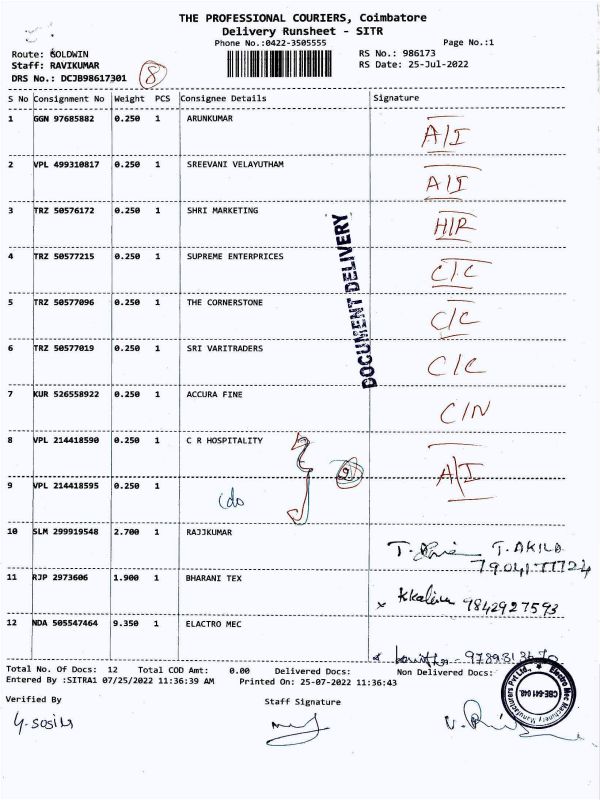 THE PROFESSIONAL COURIERS, Coimbatore
Delivery Runsheet - SITR
Phone No.:0422-3505555 Page No.:1
Route: GOLDWIN RS No.: 986173
Staff: RAVIKUMAR RS Date: 25-Jul-2022
DRS No.: DCJB98617301 8
S No Consignment No Weight PCS Consignee Details Signature
1 GGN 97685882 0.250 1 ARUNKUMAR A/I
2 VPL 499310817 0.250 1 SREEVANI VELAYUTHAM A/I
3 TRZ 50576172 0.250 1 SHRI MARKETING H/R
4 TRZ 50577215 0.250 1 SUPREME ENTERPRICES C/C
5 TRZ 50577096 0.250 1 THE CORNERSTONE C/C
6 TRZ 50577019 0.250 1 SRI VARITRADERS C/C
DOCUMENT DELIVERY
7 KUR 526558922 0.250 1 ACCURA FINE C/N
8 VPL 214418590 0.250 1 C R HOSPITALITY 2 A/I
9 VPL 214418595 0.250 1 do
10 SLM 299919548 2.700 1 RAJJKUMAR T. AKILA
11 RJP 2973606 1.900 1 BHARANI TEX 9842927593
12 NDA 505547464 9.350 1 ELACTRO MEC
Total No. Of Docs: 12 Total COD Amt: 0.00 Delivered Docs: Non Delivered Docs:
Entered By :SITRA1 07/25/2022 11:36:39 AM Printed On: 25-07-2022 11:36:43
Verified By Staff Signature
Electro Mec Machinery Manufacturers Pvt Ltd.,
CBE-641 048.